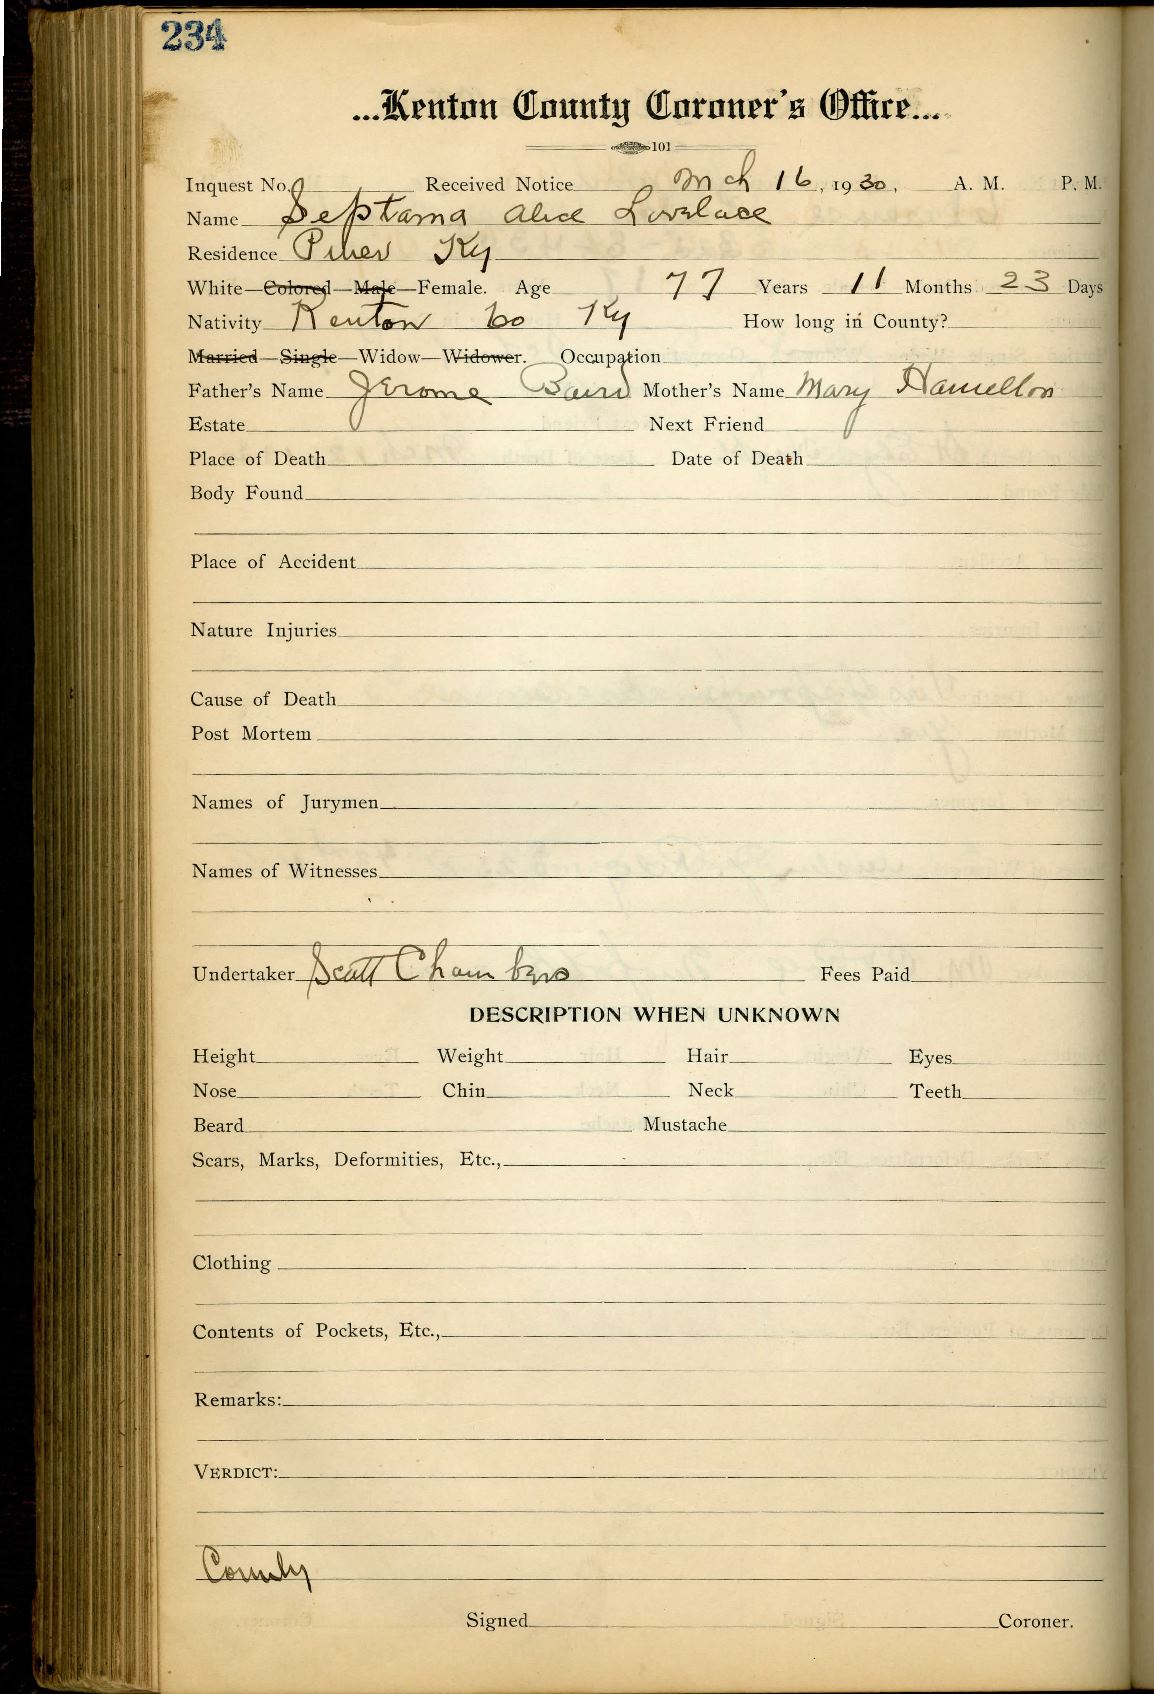 234
...Kenton County Coroner's Office...
101
Inquest No. Received Notice Mch 16, 1930, A. M. P. M.
Name Septama Alice Lovelace
Residence Piner Ky
White—Colored—Male—Female. Age 77 Years 11 Months 23 Days
Nativity Kenton Co Ky How long in County?
Married—Single—Widow—Widower. Occupation
Father's Name Jerome Baird Mother's Name Mary Hamelton
Estate Next Friend
Place of Death Date of Death
Body Found
Place of Accident
Nature Injuries
Cause of Death
Post Mortem
Names of Jurymen
Names of Witnesses
Undertaker Scott Chambers Fees Paid
DESCRIPTION WHEN UNKNOWN
Height Weight Hair Eyes
Nose Chin Neck Teeth
Beard Mustache
Scars, Marks, Deformities, Etc.,
Clothing
Contents of Pockets, Etc.,
Remarks:
VERDICT:
County
Signed Coroner.